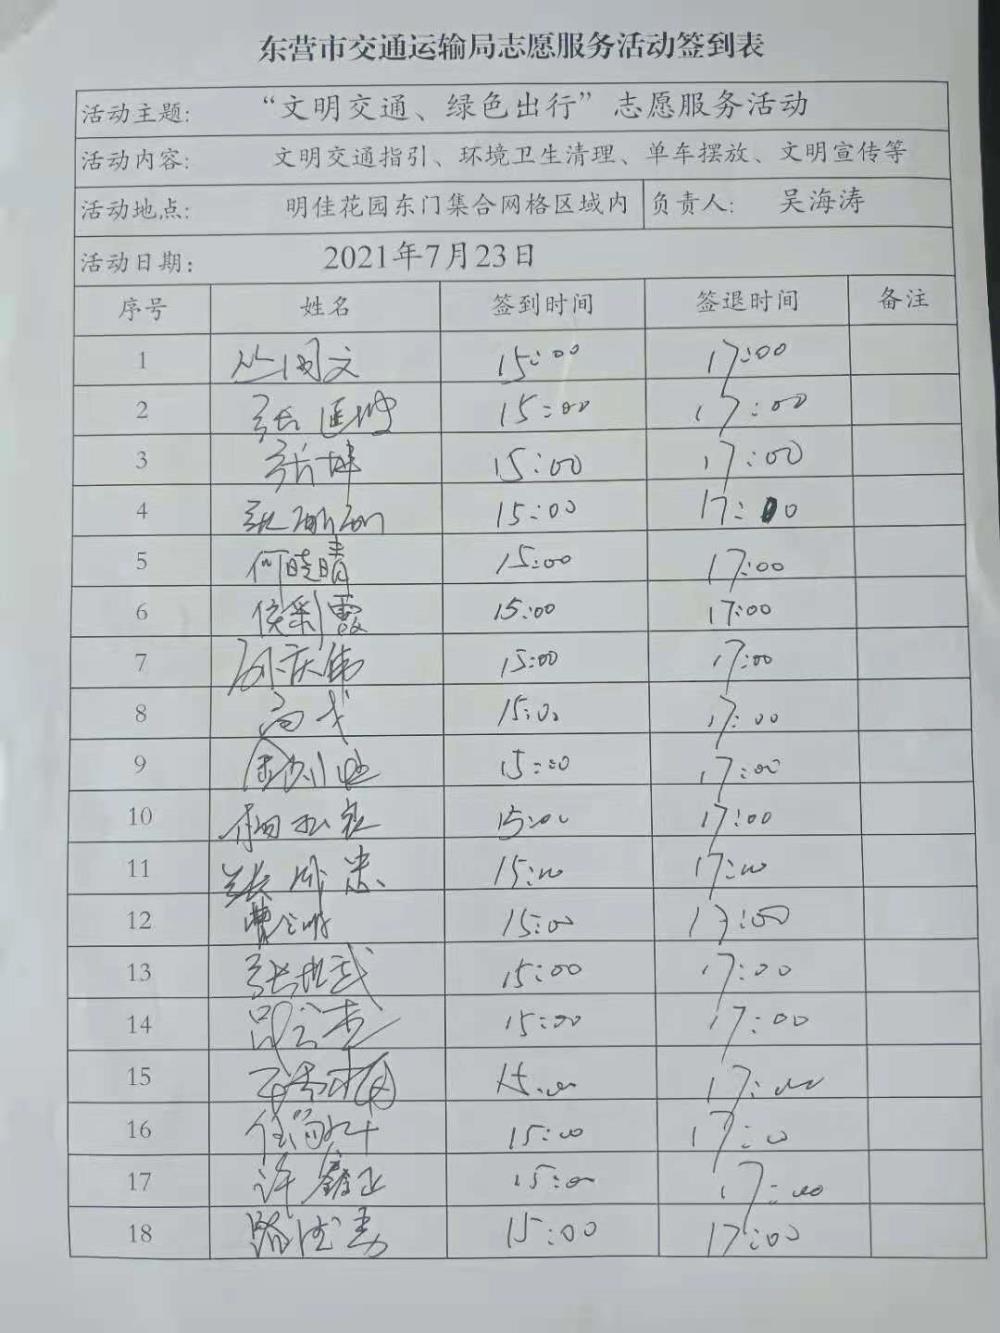 东营市交通运输局志愿服务活动签到表
活动主题: “文明交通、绿色出行”志愿服务活动
活动内容: 文明交通指引、环境卫生清理、单车摆放、文明宣传等
活动地点: 明佳花园东门集合网格区域内 负责人: 吴海涛
活动日期: 2021年7月23日
序号 姓名 签到时间 签退时间 备注
1 15:00 17:00
2 15:00 17:00
3 张坤 15:00 17:00
4 15:00 17:00
5 何晓晴 15:00 17:00
6 侯彩霞 15:00 17:00
7 孙庆伟 15:00 17:00
8 15:00 17:00
9 15:00 17:00
10 15:00 17:00
11 15:00 17:00
12 15:00 17:00
13 张世武 15:00 17:00
14 15:00 17:00
15 15:00 17:00
16 15:00 17:00
17 许鑫正 15:00 17:00
18 15:00 17:00